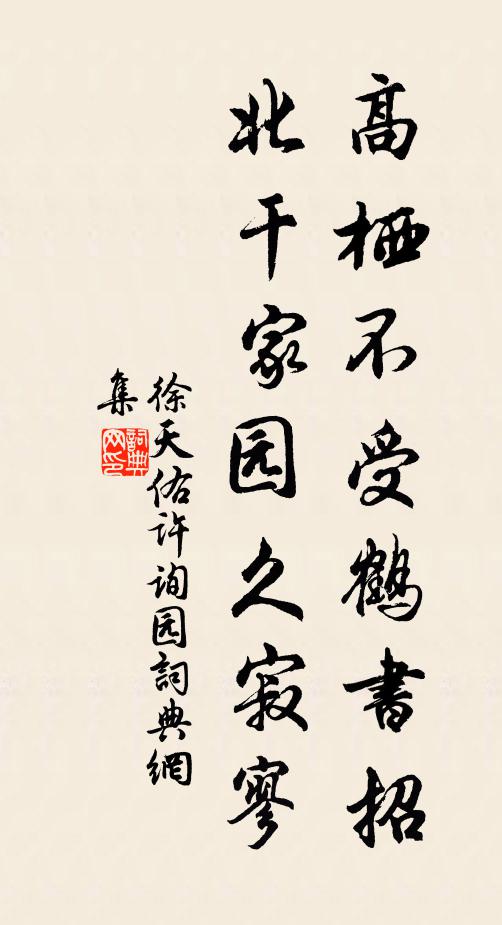 高栖不受鹤書招
北干家园久寂寥
徐天佑许询园詞典網
集
詞典网印